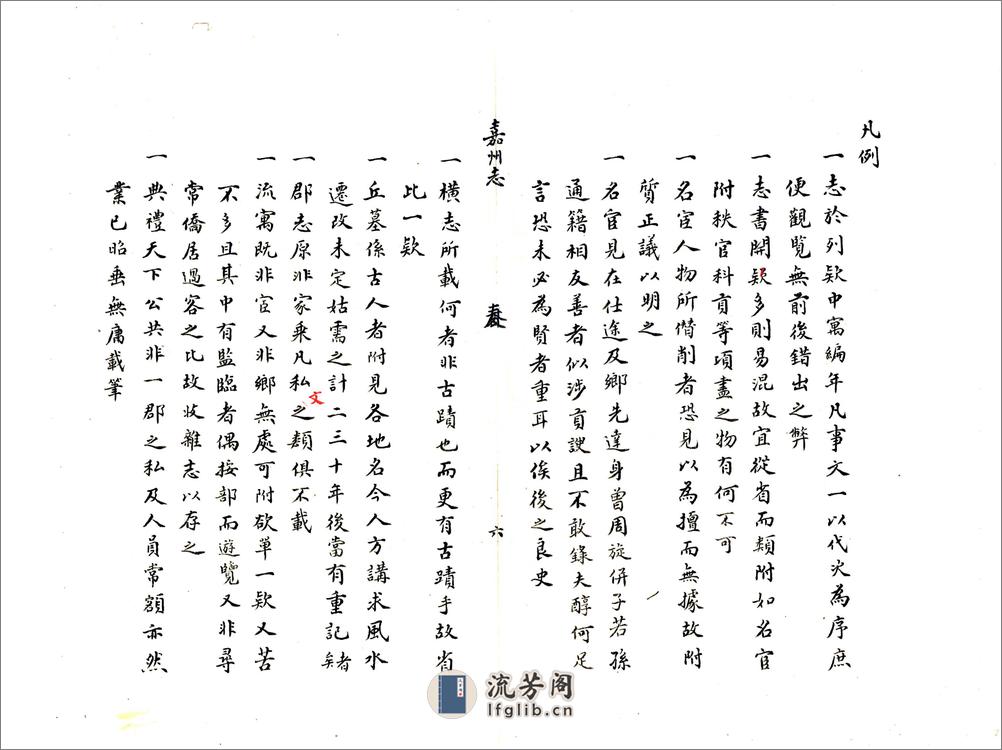 凡例
一志於列欵中寓編年凡事文一以代次為序庶
便觀覽無前後錯出之弊
一志書開欵多則易混故宜從省而類附如名官
附秩官科貢等項盡之物有何不可
一名宦人物所僣削者恐見以為擅而無據故附
質正議以明之
一名官見在仕途及鄉先達身曾周旋併子若孫
通籍相友善者似涉貢諛且不敢錄夫醇何足
言恐未必為賢者重耳以俟後之良史
嘉州志
六
一橫志所載何者非古蹟也而更有古蹟乎故省
比一欵
一丘墓係古人者附見各地名今人方講求風水
遷改未定姑需之計二三十年後當有重記者
一郡志原非家乘凡私文之類俱不載
一流寓既非宦又非鄉無處可附欲單一欵又苦
不多且其中有監臨者偶按部而遊覽又非尋
常僑居過客之比故收雜志以存之
一典禮天下公共非一郡之私及人員常額亦然
業已昭垂無庸載筆
流芳阁
lfglib.cn